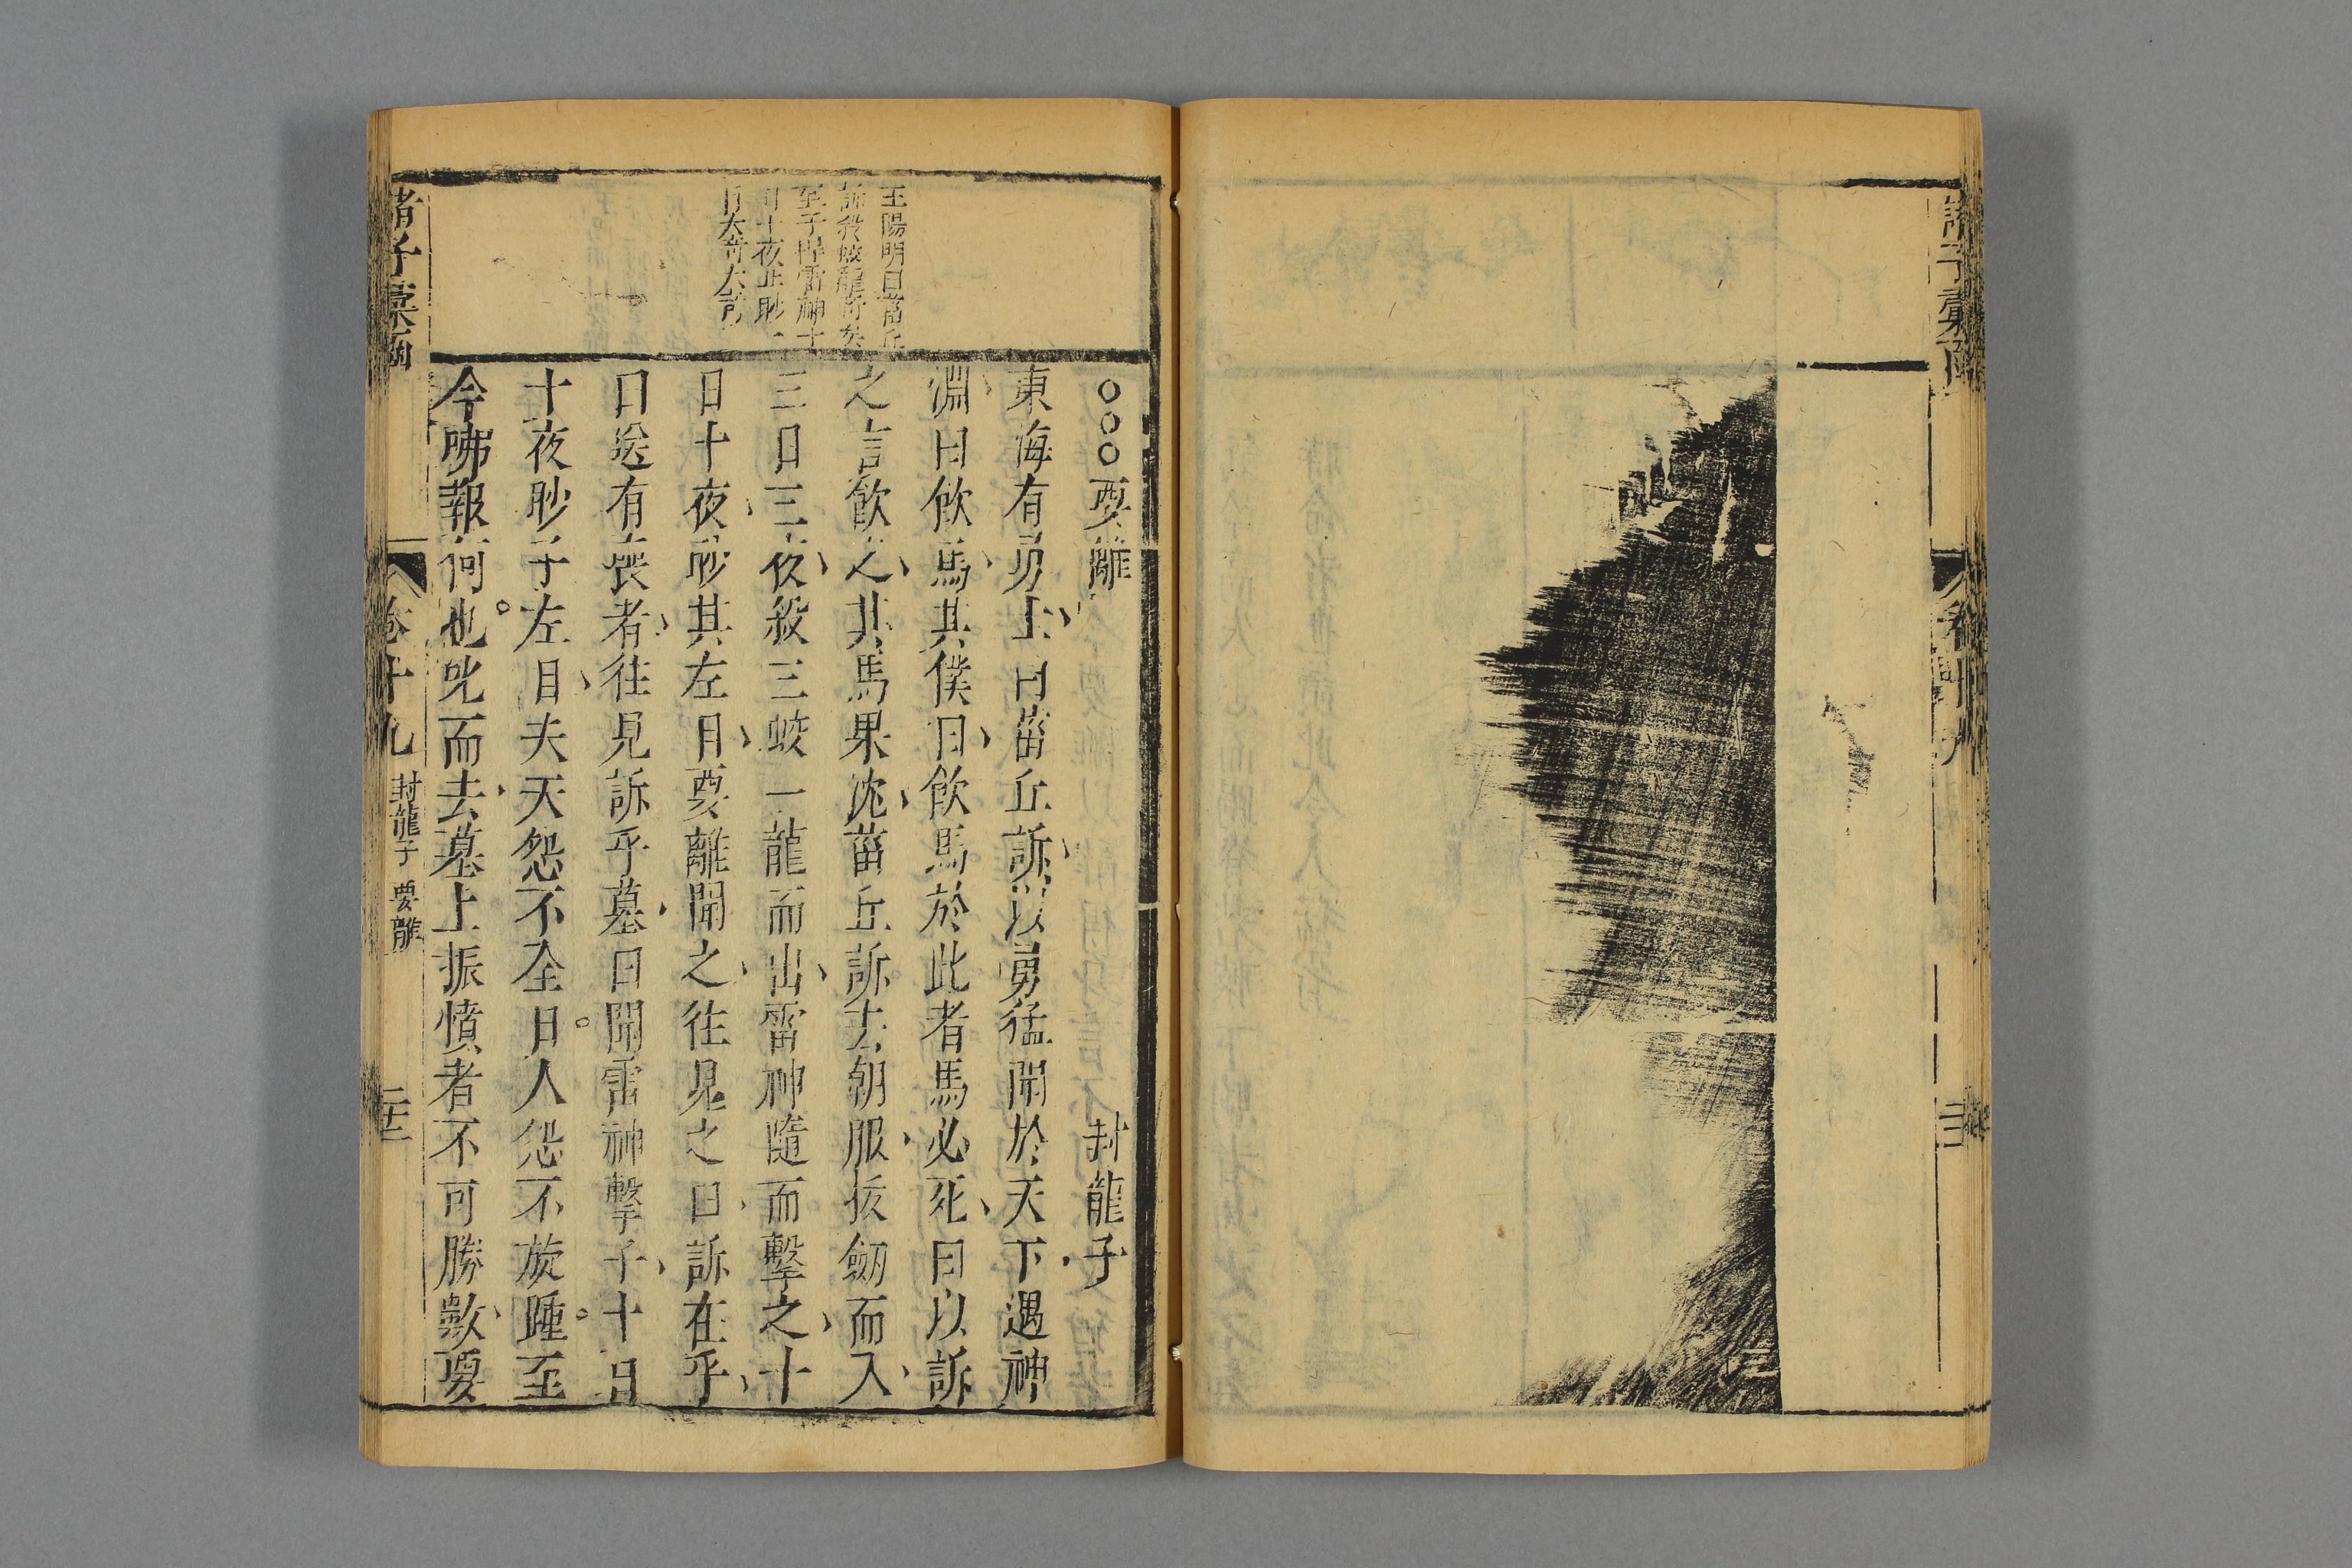 諸子彙函
卷十九
王陽明曰菑丘
訴殺蛟龍奇矣
至于與雷神十
日十夜止眇一
目大奇大奇
○○○要離 封龍子
東海有勇士曰菑丘訢以勇猛聞於天下遇神
淵曰飲馬其僕曰飲馬於此者馬必死曰以訢
之言飲之其馬果沈菑丘訢去朝服拔劒而入
三日三夜殺三蛟一龍而出雷神隨而擊之十
日十夜眇其左目要離聞之徃見之曰訢在乎
曰送有喪者徃見訢乎墓曰聞雷神擊子十日
十夜眇子左目夫天怨不全日人怨不旋踵至
今弗報何也叱而去墓上振憤者不可勝數要
諸子彙函
卷十九
封龍子 要離
二十三